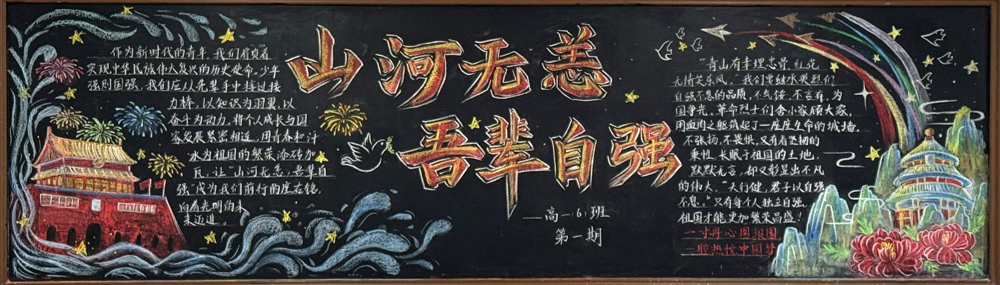 山河无恙
吾辈自强
高一6班
第一期
作为新时代的青年,我们肩负着
实现中华民族伟大复兴的历史使命。少年
强则国强,我们应从先辈手中接过接
力棒,以知识为羽翼,以
奋斗为动力,将个人成长与国
家发展紧密相连,用青春和汗
水为祖国的繁荣添砖加
瓦,让“山河无恙,吾辈自
强”成为我们前行的座右铭,
向着光明的未
来迈进
“青山有幸埋忠骨,红花
无情笑东风。”我们要继承英烈们
自强不息的品质,不气馁,不言弃,为
国争光。革命烈士们舍小家顾大家,
用血肉之躯筑起了一座座生命的城墙,
不张扬,不畏惧,又有着坚韧的
秉性,长眠于祖国的土地,
默默无言,却又彰显出不凡
的伟大。“天行健,君子以自强
不息。”只有每个人独立自强,
祖国才能更加繁荣昌盛!
一寸丹心图报国
一腔热忱中国梦